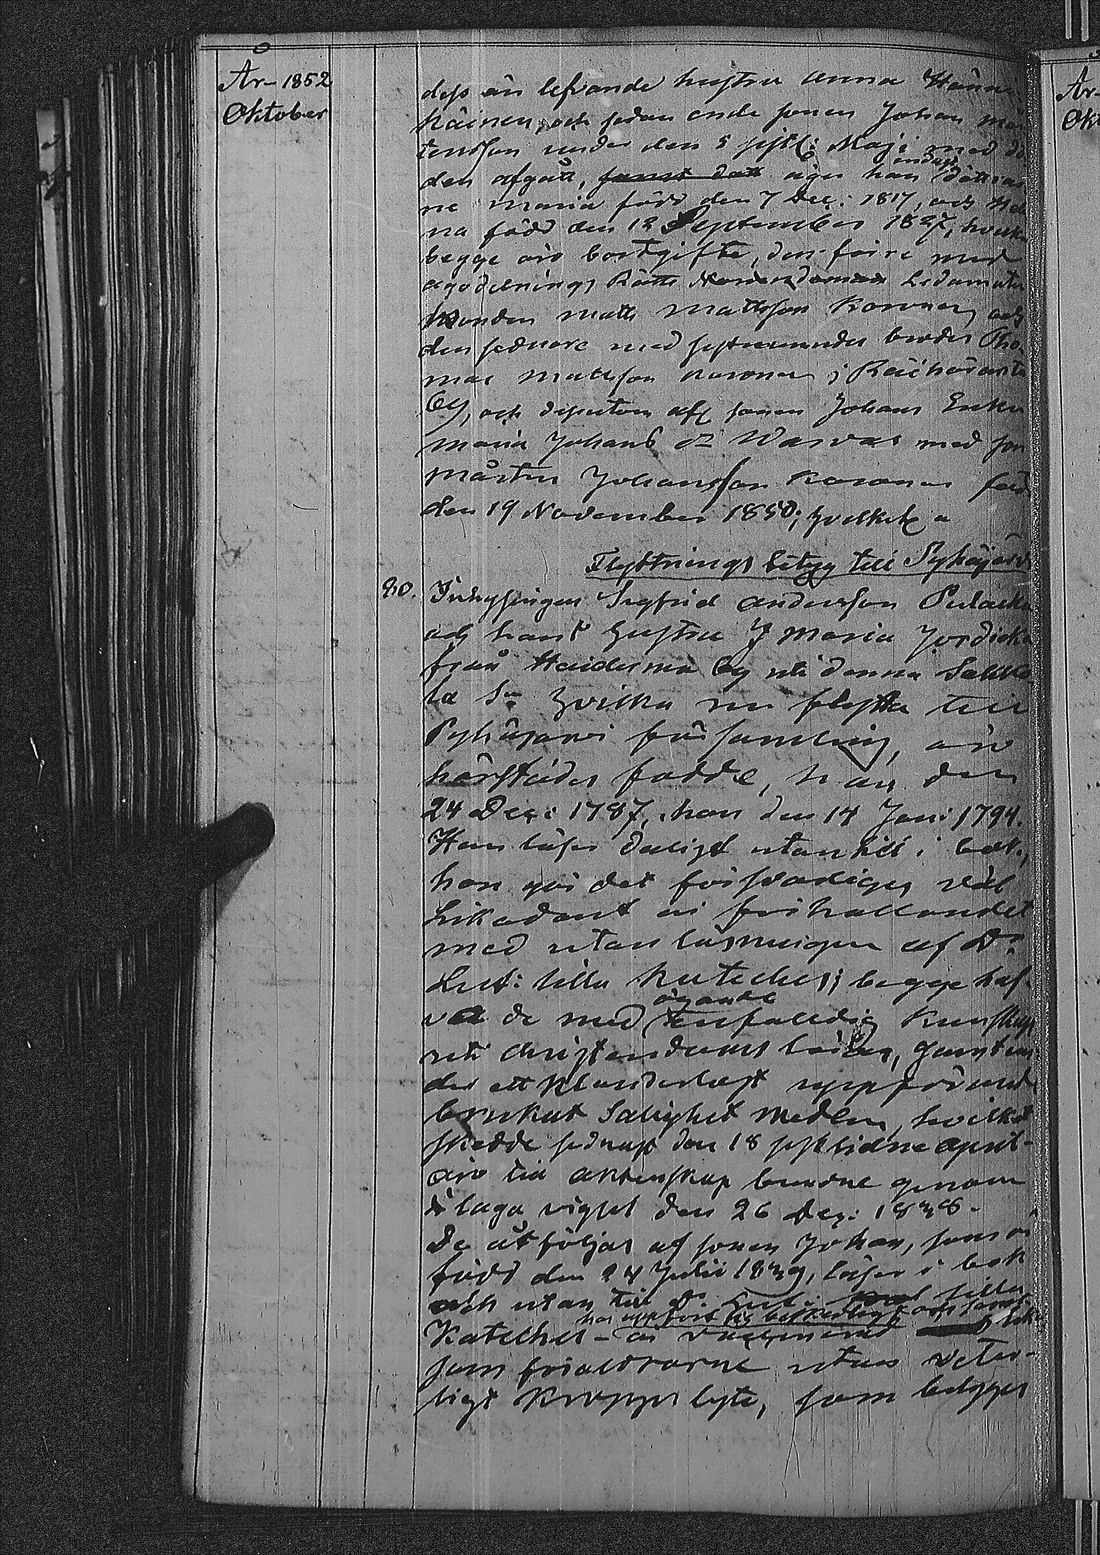 År 1852
Oktober
dess än lefvande hustru Anna Hänni
käinen, och sedan ende sonen Johan Mår
tensson under den 5 sistl: Maji med dö
den afgått, äger han endast döttrar
ne Maria född den 7 Dec: 1817, och Hele
na född den 12 September 1827, hvilka
begge äro bortgifte, den förre med
ägodelnings Rätts Ledamoten
bonden Matts Mattsson Koronen, och
den sednare med systemannder broder Tho
mas Mattsson Koronen i
By, och dessutom afl sonen Johans Enka
Maria Johans dr Warvas med son
Mårten Johansson Koronen född
den 19 November 1850; hvilket a
Flyttnings betyg till Pyhäjärvi
80. Inhysingen Sigfrid Andersson Pulakka
och hans hustru Maria Jordikka
från by uti denna Sakko
la Sn hvilka nu flytta till
Pyhäjärvi församling, äro
härstädes födde, han den
24 Dec: 1787, hon den 14 Juni 1794.
Han läser dåligt utantill i bok,
hon gör det försvarligen väl
Likadant är förhållandet
med utan läsningen af Dr
Lut: lilla Kateches; begge haf-
va de med ägande enfaldig kunskap
uti christendoms läran,
der ett klanderlöst uppförande
brukat Salighets medlen, hvilket
skedde sednast den 18 sistlidne April
äro till äktenskap bundne genom
laga vigsel den 26 Dec: 1838.
De åtföljas af sonen Johan, som är
född den 24 Julii 1839, läser i bok
och utan till Dr Lut: lilla
Kateches - har uppfört sig beskedligt och är vaccinerad
som föräldrarne utan veter-
ligt kropps lyte, som betygas